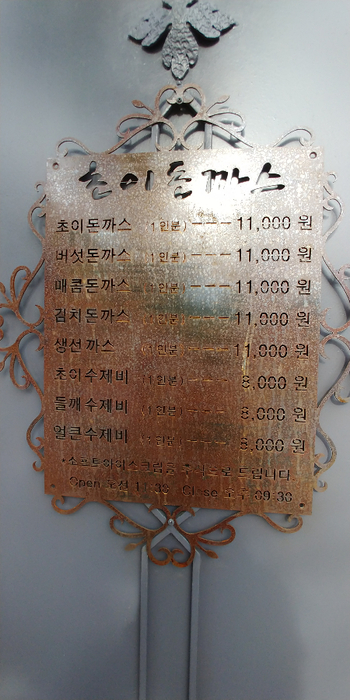 초이돈까스
초이돈까스 (1인분) --- 11,000 원
버섯돈까스 (1인분) --- 11,000 원
매콤돈까스 (1인분) --- 11,000 원
김치돈까스 (1인분) --- 11,000 원
생선까스 (1인분) --- 11,000 원
초이수제비 (1인분) --- 8,000 원
들깨수제비 (1인분) --- 8,000 원
얼큰수제비 (1인분) --- 8,000 원
*소프트아이스크림을 후식으로 드립니다.
Open 오전 11:30 Close 오후 09:30